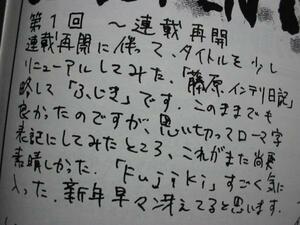 第1回 〜連載再開
連載再開に伴って、タイトルを少し
リニューアルしてみた。「藤原インテリ日記」
略して「ふじき」です。このままでも
良かったのですが、思い切ってローマ字
表記にしてみたところ、これがまた尚更
素晴しかった。「Fujiki」すごく気に
入った。新年早々冴えてると思います。